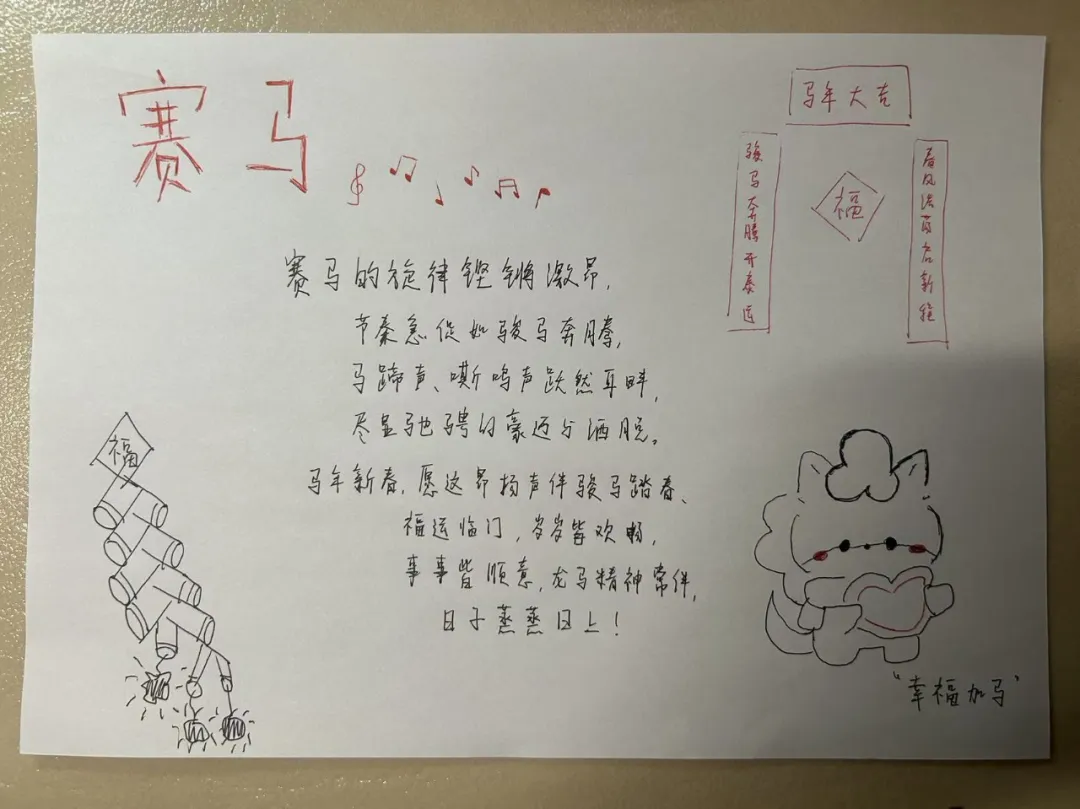 赛马
马年大吉
骏马奔腾开泰运
福
春风浩荡启新程
赛马的旋律铿锵激昂，
节奏急促如骏马奔腾，
马蹄声、嘶鸣声跃然耳畔，
尽显驰骋的豪迈与洒脱。
马年新春，愿这昂扬声伴骏马踏春、
福运临门，岁岁皆欢畅，
事事皆顺意，龙马精神常伴，
日子蒸蒸日上！
福
“幸福加马”